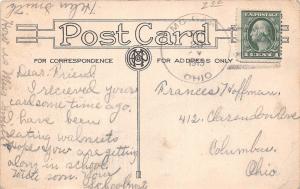 Post Card
FOR CORRESPONDENCE
FOR ADDRESS ONLY
OHIO
Dear Friend
I recieved yours
card some time ago.
I have been
eating walnuts
hope you are getting
along in school
Write soon. Your
Frances Hoffman
412 Clarendon Ave
Columbus
Ohio